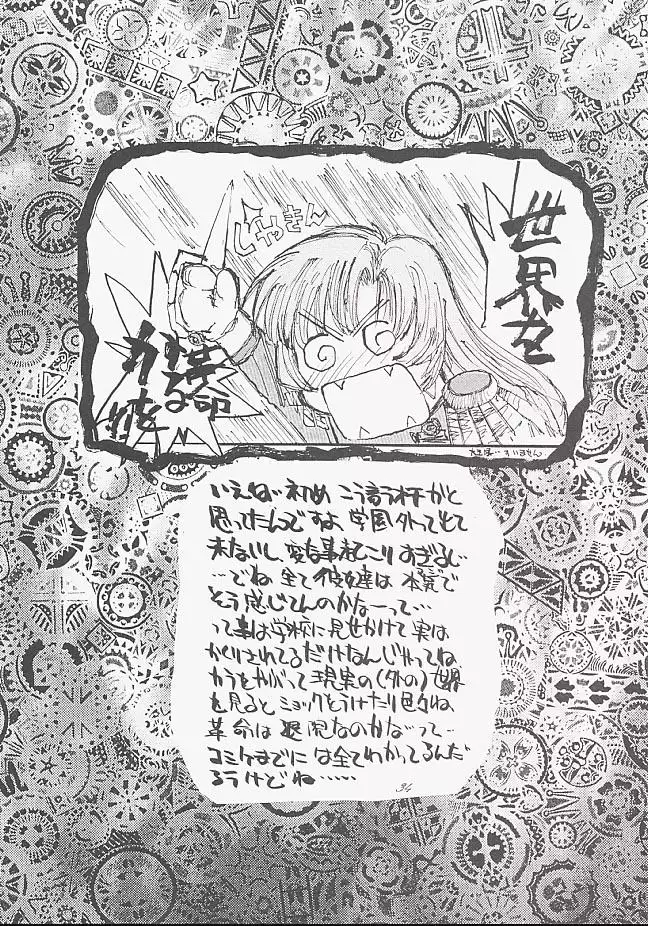 世界を
革命
する
力を
じゃきん
すいません
いえね 初め こう言う オチかと
思ってたんですよ 学園外って出て
来ないし、変な事起こりすぎるし…
…でね 全て彼女達は 本気で
そう感じてんのかなーって…
って事は学校に見せかけて実は
されてるだけなんじゃってね
現実の(外の)世界
を見ると ショックをうけたり色々ね、
革命は 退院なのかなって…
コミケまでには全てわかってるんだ
ろうけどね……
34